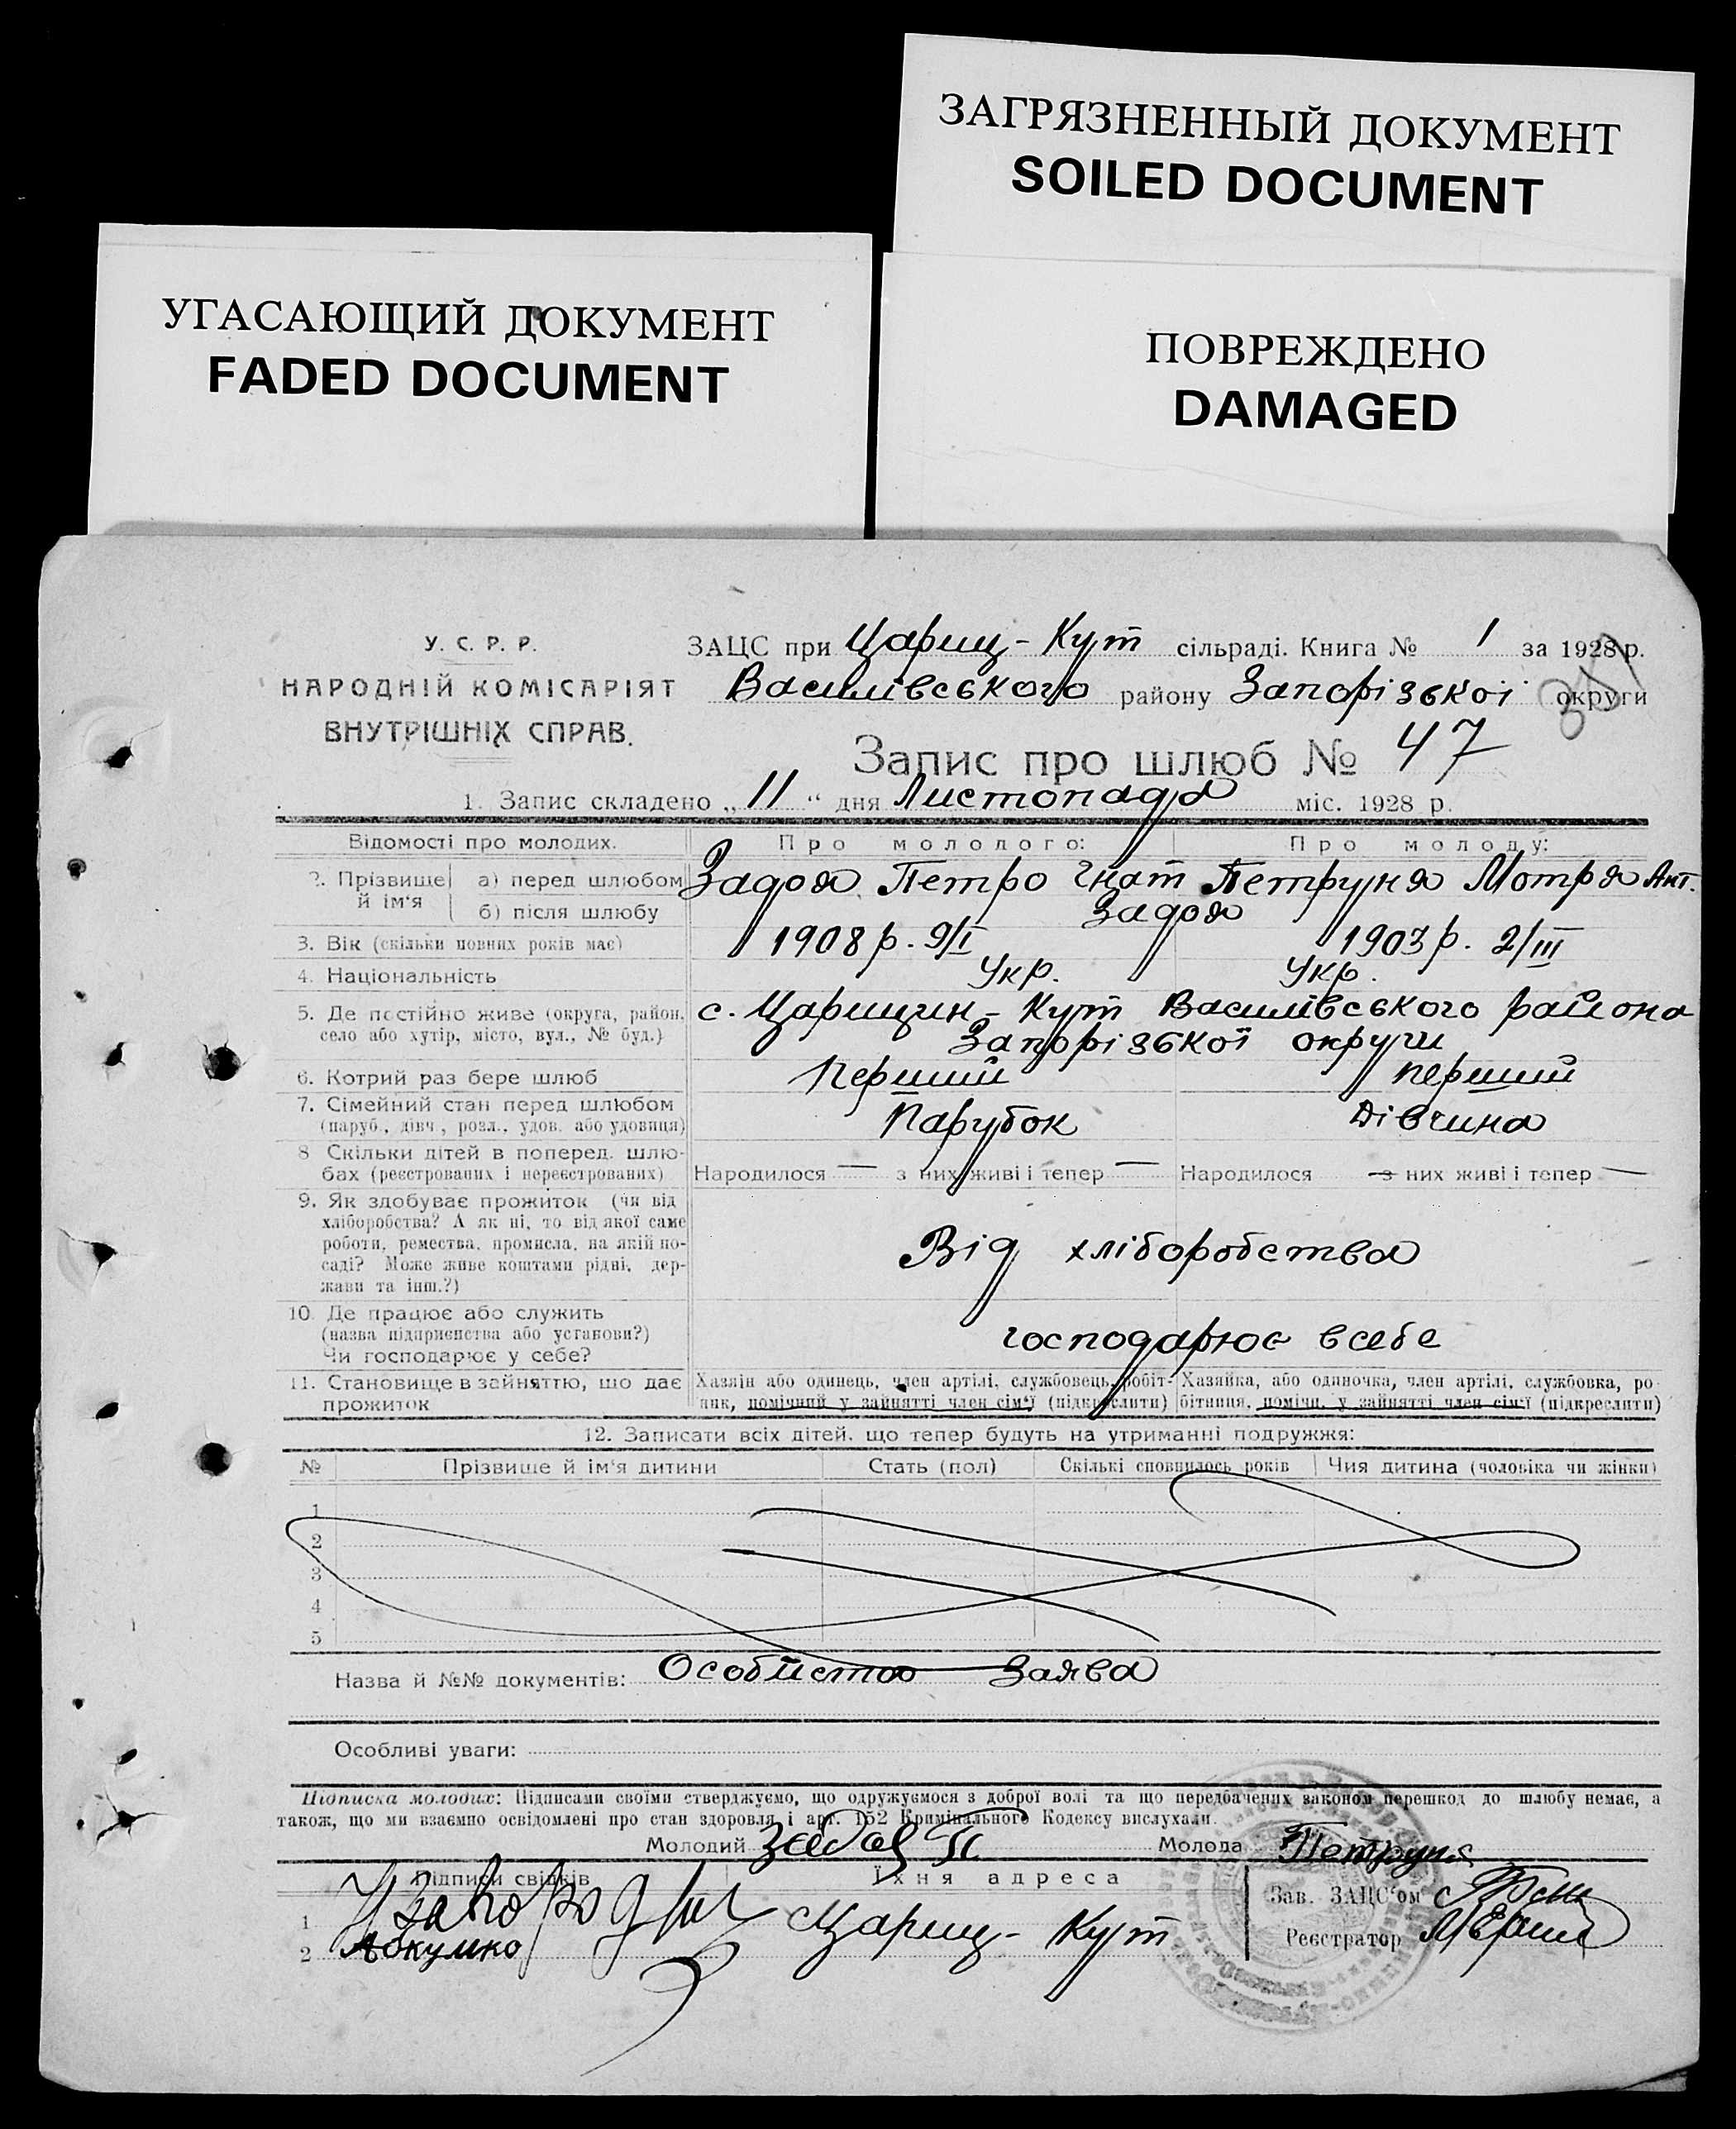 ЗАГРЯЗНЕННЫЙ ДОКУМЕНТ
SOILED DOCUMENT
УГАСАЮЩИЙ ДОКУМЕНТ
FADED DOCUMENT
ПОВРЕЖДЕНО
DAMAGED
У. С. Р. Р.
НАРОДНІЙ КОМІСАРІЯТ
ВНУТРІШНІХ СПРАВ.
ЗАЦС при Цариц-Кут сільраді. Книга № 1 за 1928 р.
Василівського району Запорізької округи
Запис про шлюб № 47
1. Запис складено „11“ дня Листопада міс. 1928 р.
Відомості про молодих. Про молодого: Про молоду:
2. Прізвище й ім'я а) перед шлюбом Задоя Петро Гнат Петруня Мотря Ант.
б) після шлюбу Задоя
3. Вік (скільки повних років має) 1908 р. 9/I 1903 р. 2/III
4. Національність Укр. Укр.
5. Де постійно живе (округа, район, с. Царицин-Кут Василівського района
село або хутір, місто, вул., № буд.) Запорізької округи
6. Котрий раз бере шлюб Перший перший
7. Сімейний стан перед шлюбом Парубок Дівчина
(паруб., дівч., розл., удов. або удовиця)
8 Скільки дітей в поперед. шлю-
бах (реєстрованих і нереєстрованих) Народилося — з них живі і тепер — Народилося — з них живі і тепер —
9. Як здобуває прожиток (чи від
хліборобства? А як ні, то від якої саме
роботи, ремества, промисла, на якій по-
саді? Може живе коштами рідні, дер-
жави та інш.?)
Від хліборобства
10. Де працює або служить
(назва підприємства або установи?)
Чи господарює у себе?
господарює всебе
11. Становище в зайняттю, що дає Хазяін або одинець, член артілі, службовець, робіт- Хазяйка, або одиночка, член артілі, службовка, ро-
прожиток ник, помічний у зайнятті член сім'ї (підкреслити) бітниця, помічн. у зайнятті член сім'ї (підкреслити)
12. Записати всіх дітей, що тепер будуть на утриманні подружжя:
№ Прізвище й ім'я дитини Стать (пол) Скількі сповнилось років Чия дитина (чоловіка чи жінки)
1
2
3
4
5
Назва й №№ документів: Особиста Заява
Особливі уваги:
Підписка молодих: Підписами своїми стверджуємо, що одружуємося з доброї волі та що передбачених законом перешкод до шлюбу немає, а
також, що ми взаємно освідомлені про стан здоровля і арт. 152 Кримінального Кодексу вислухали.
Молодий Задоя П. Молода Петруня
Підписи свідків Їхня адреса Зав. ЗАЦС'ом
1 Цариц-Кут Реєстратор
2